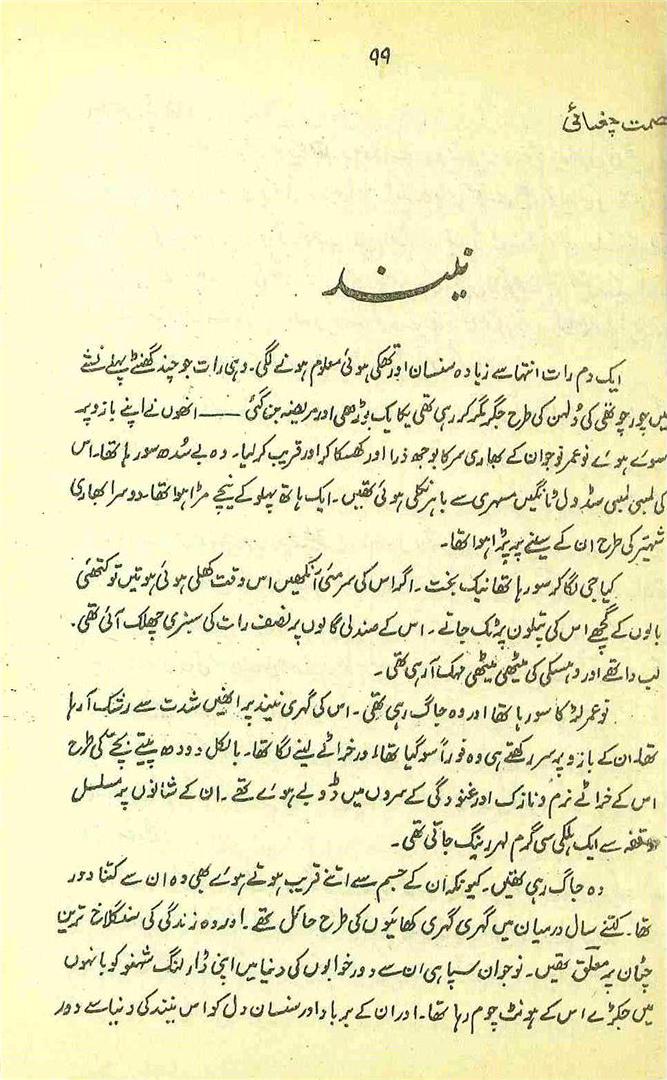 ۹۹
عصمت چغتائی
نیند
ایک دم رات انتہا سے زیادہ سنسان اور تھکی ہوئی معلوم ہونے لگی۔ وہی رات جو چند گھنٹے پہلے نشے
میں چور چوتھی کی دُلہن کی طرح جگر مگر کر رہی تھی یکا یک بوڑھی اور مریضہ بن گئی —— انھوں نے اپنے بازو پر
سوئے ہوئے نو عمر نوجوان کے بھاری سر کا بوجھ ذرا اور کھسکا کر اور قریب کر لیا۔ وہ بے سُدھ سو رہا تھا۔ اس
کی لمبی لمبی سڈول ٹانگیں مسہری سے باہر نکلی ہوئی تھیں۔ ایک ہاتھ پہلو کے نیچے مڑا ہوا تھا۔ دوسرا بھاری
شہتیر کی طرح ان کے سینے پہ پڑا ہوا تھا۔
کیا جی لگا کر سو رہا تھا نیک بخت۔ اگر اس کی سرمئی آنکھیں اس وقت کھلی ہوئی ہوتیں تو کتھئی
بالوں کے گچھے اس کی پتلیوں پر ٹک جاتے۔ اس کے صندلی گالوں پر نصف رات کی سبزی چھلک آئی تھی۔
لب وا تھے اور وہسکی کی میٹھی میٹھی مہک آ رہی تھی۔
نو عمر لڑکا سو رہا تھا اور وہ جاگ رہی تھی۔ اس کی گہری نیند پر انھیں شدت سے رشک آ رہا
تھا۔ ان کے بازو پر سر رکھتے ہی وہ فوراً سو گیا تھا اور خراٹے لینے لگا تھا۔ بالکل دودھ پیتے بچے کی طرح
اس کے خراٹے نرم و نازک اور غنودگی کے سروں میں ڈوبے ہوئے تھے۔ ان کے شانوں پر مسلسل
وقفہ سے ایک ہلکی سی گرم لہر رینگ جاتی تھی۔
وہ جاگ رہی تھیں۔ کیونکہ اُن کے جسم سے اتنے قریب ہوتے ہوئے بھی وہ ان سے کتنا دور
تھا۔ کتنے سال درمیان میں گہری گہری کھائیوں کی طرح حائل تھے۔ اور وہ زندگی کی سنگلاخ ترین
چٹان پر معلّق تھیں۔ نوجوان سپاہی ان سے دور خوابوں کی دنیا میں اپنی ڈارلنگ شہنو کو بانہوں
میں جکڑے اس کے ہونٹ چوم رہا تھا۔ اور ان کے برباد اور سنسان دل کو اس نیند کی دنیا سے دور